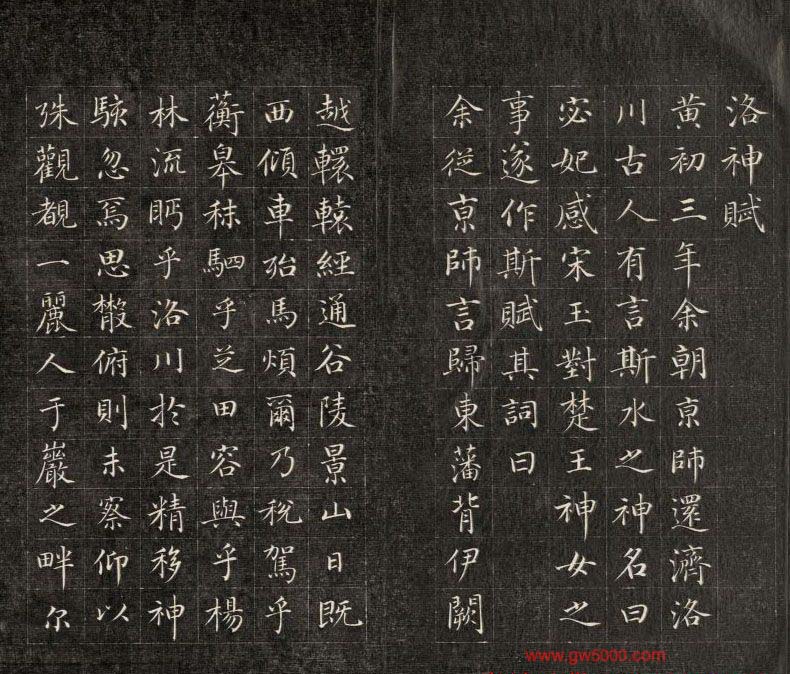 洛神賦
黄初三年余朝亰師還濟洛
川古人有言斯水之神名曰
宓妃感宋玉對楚王神女之
事遂作斯賦其詞曰
余從亰師言歸東藩背伊闕
越轘轅經通谷陵景山日既
西傾車殆馬煩爾乃税駕乎
蘅皋秣駟乎芝田容與乎楊
林流眄乎洛川於是精移神
駭忽焉思散俯則未察仰以
殊觀覩一麗人于巖之畔尔
www.gw5000.com